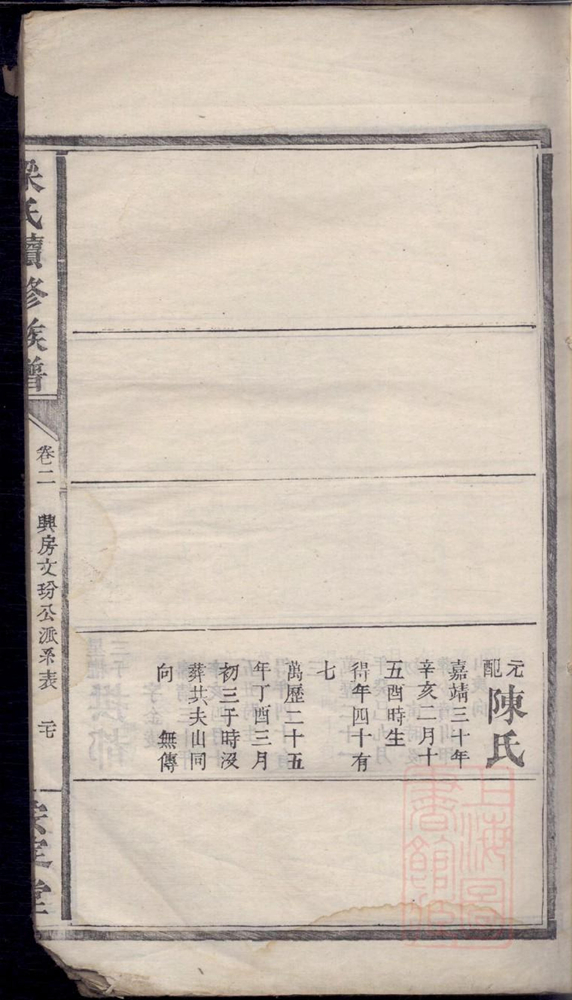 元配陳氏
嘉靖三十年
辛亥二月十
五酉時生
得年四十有
七
萬歷二十五
年丁酉三月
初三子時沒
葬共夫山同
向 無傳
梁氏續修族譜
卷二
興房文玢公派系表
上海圖書館藏